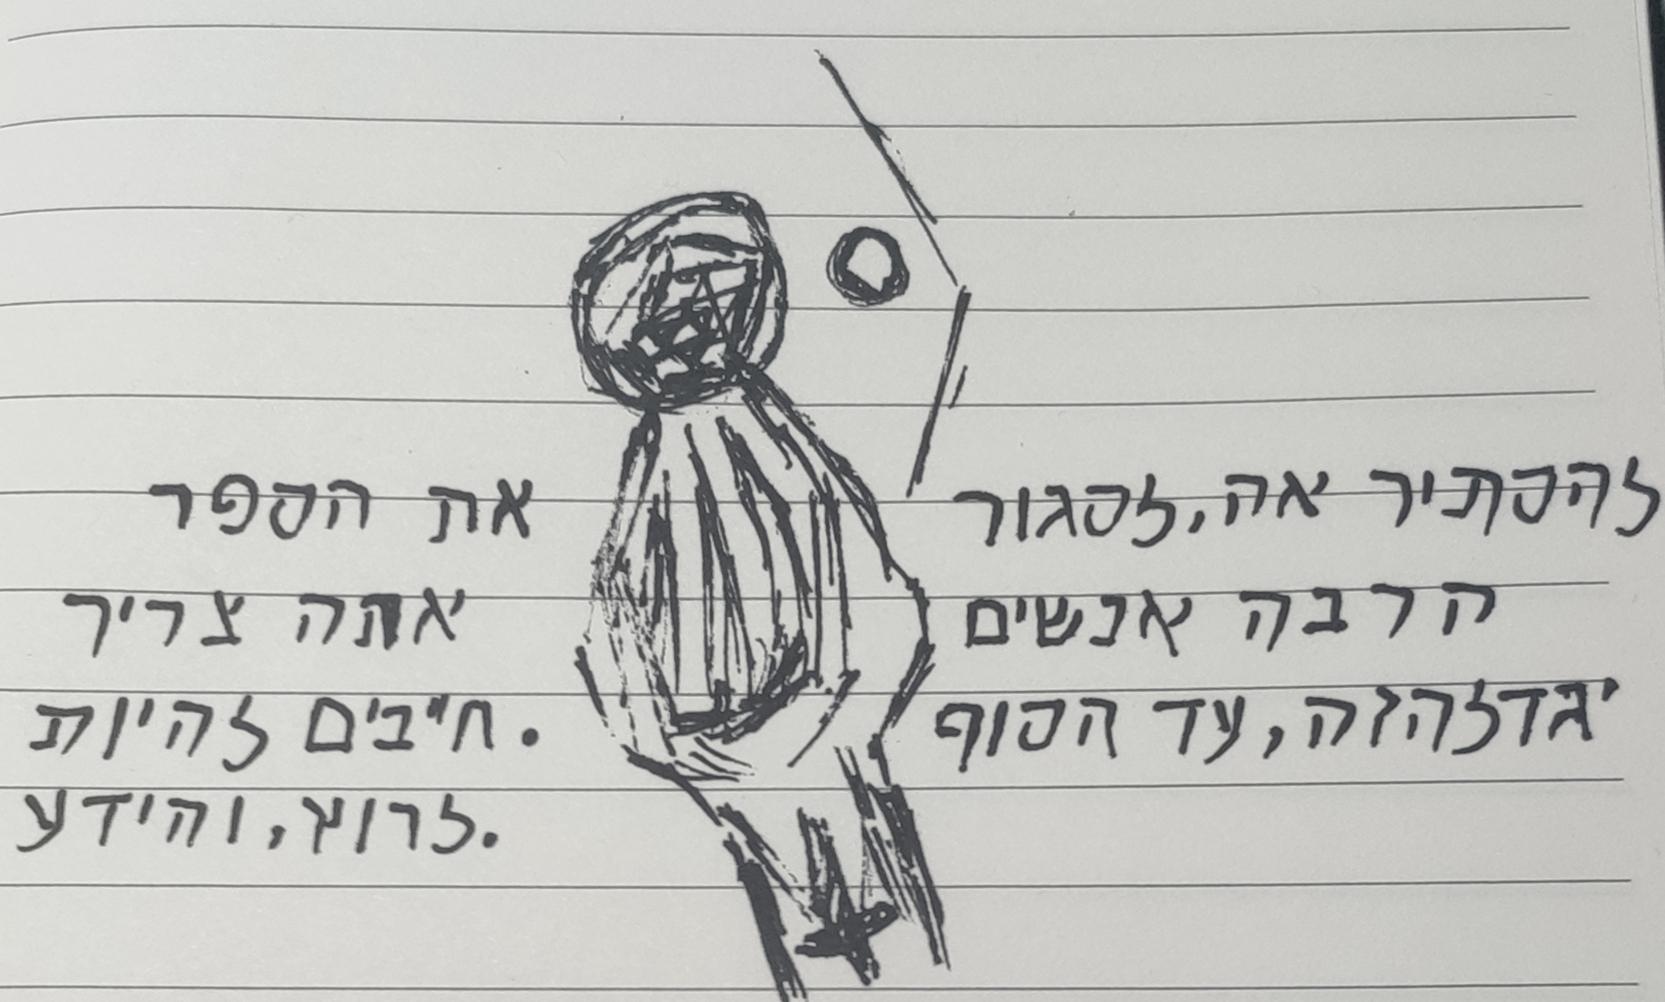 להסתיר אה, לסגור את הספר
הרבה אנשים אתה צריך
יגדלהזה, עד הסוף . חייבים להיות
.לרוץ, והידע